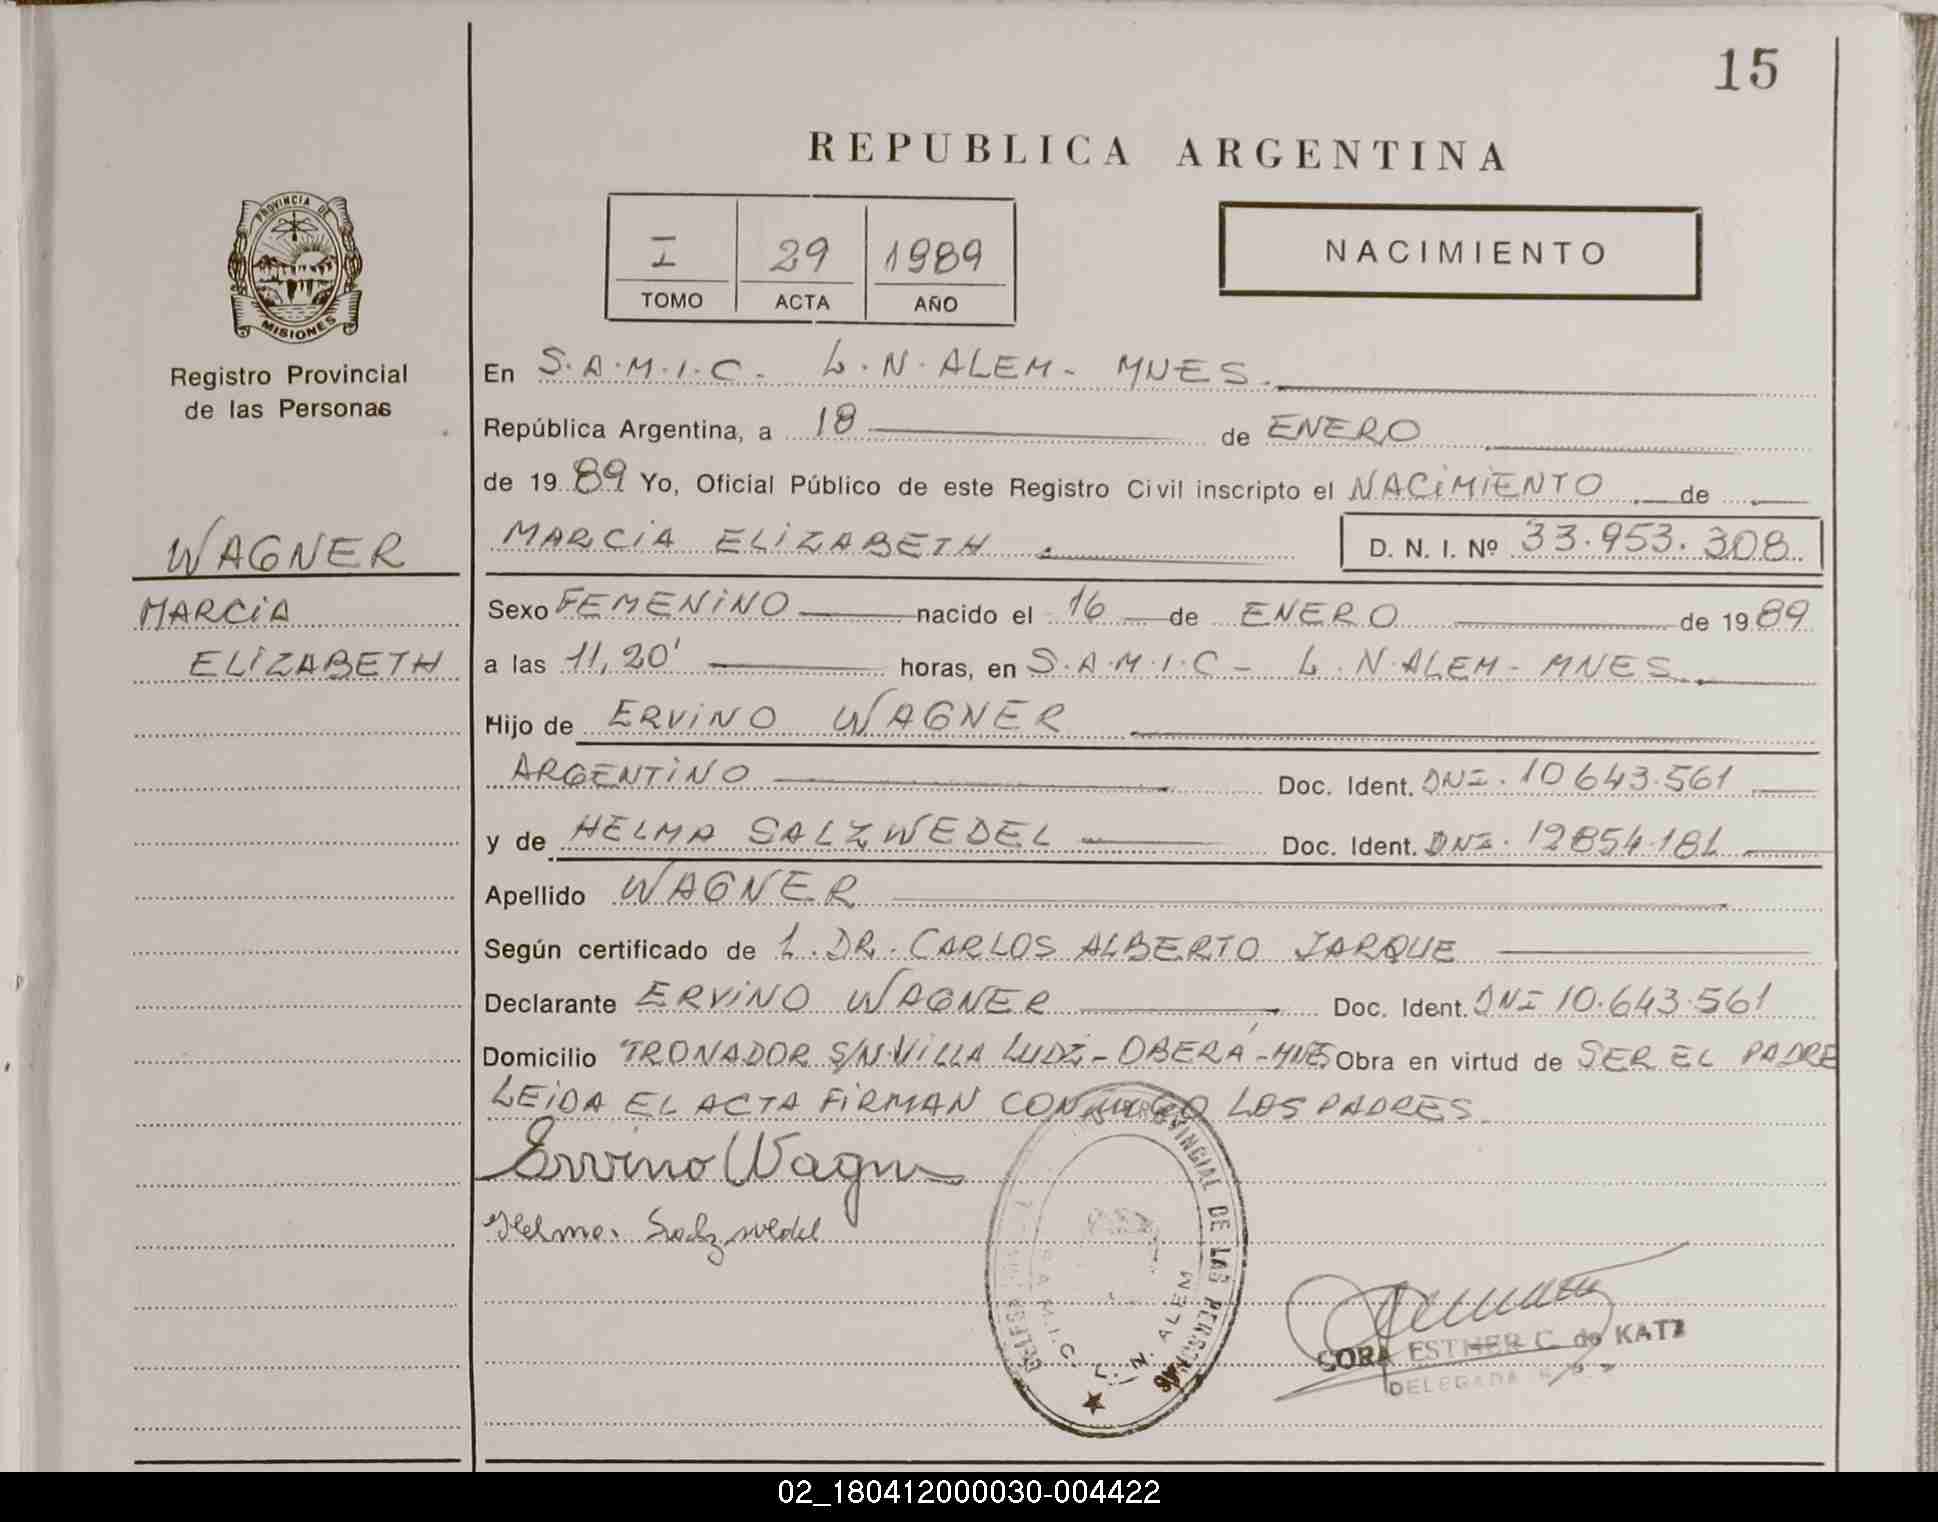 15
REPUBLICA ARGENTINA
PROVINCIA DE
MISIONES
Registro Provincial
de las Personas
I 29 1989
TOMO ACTA AÑO
NACIMIENTO
En S.A.M.I.C. L.N.ALEM- MNES.
República Argentina, a 18 de ENERO
de 1989 Yo, Oficial Público de este Registro Civil inscripto el NACIMIENTO de
WAGNER
MARCIA ELIZABETH D. N. I. Nº 33.953.308
MARCIA
ELIZABETH
Sexo FEMENINO nacido el 16 de ENERO de 1989
a las 11,20' horas, en S.A.M.I.C- L.N.ALEM- MNES.
Hijo de ERVINO WAGNER
ARGENTINO Doc. Ident. DNI. 10643.561
y de HELMA SALZWEDEL Doc. Ident. DNI. 12854.181
Apellido WAGNER
Según certificado de L. DR. CARLOS ALBERTO JARQUE
Declarante ERVINO WAGNER Doc. Ident. DNI 10.643.561
Domicilio TRONADOR S/N.VILLA LUDZ-OBERÁ-MNES Obra en virtud de SER EL PADRE
LEIDA EL ACTA FIRMAN CONMIGO LOS PADRES.
Ervino Wagner
Helma Salzwedel
PROVINCIAL DE LAS PERSONAS
S.A.M.I.C. L.N. ALEM
CORA ESTHER C. de KATZ
DELEGADA
02_180412000030-004422